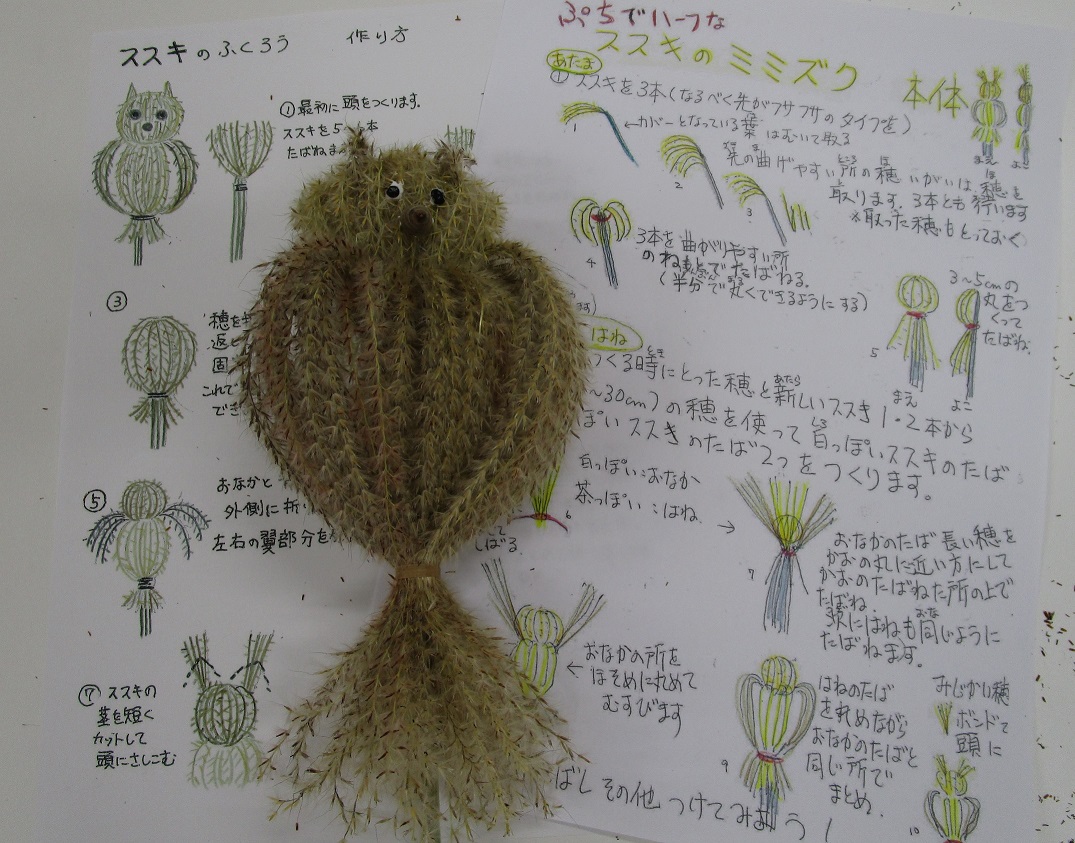 ススキのふくろう 作り方
①最初に頭をつくります。
ススキを5 本
たばねま
③
穂を
返
固
これで
でき
⑤
おなかと
外側に折り
左右の翼部分を
⑦ ススキの
茎を短く
カットして
頭にさしこむ
ぷちでハーフな
ススキのミミズク 本体
まえ よこ
あたま
① ススキを3本(なるべく先がフサフサのタイプを)
1 ←カバーとなっている葉はむいて取る
2
先の曲げやすい所の穂いがいは、穂を
取ります。3本とも行います
※取った穂もとっておく
3
4
3本を曲がりやすい所
のね でたばねる。
(半分で丸くできるようにする)
3〜5cmの
丸をつ
くって
たばね。
5 まえ よこ
はね
つくる時にとった穂と新しいススキ1・2本から
〜30cm)の穂を使って白っぽいススキのたば
ぽいススキのたば2つをつくります。
白っぽい:おなか
茶っぽい:はね →
6
しばる。
7
おなかのたば長い穂を
かおの丸に近い方にして
かおのたばねた所の上で
たばね。
頭にはねも同じように
たばねます。
← おなかの所を
ほそめに丸めて
むすびます
9
はねのたば
を丸めながら
おなかのたばと
同じ所で
まとめ。
みじかい穂
ボンドで
頭に
10
ばし その他 つけてみよう!